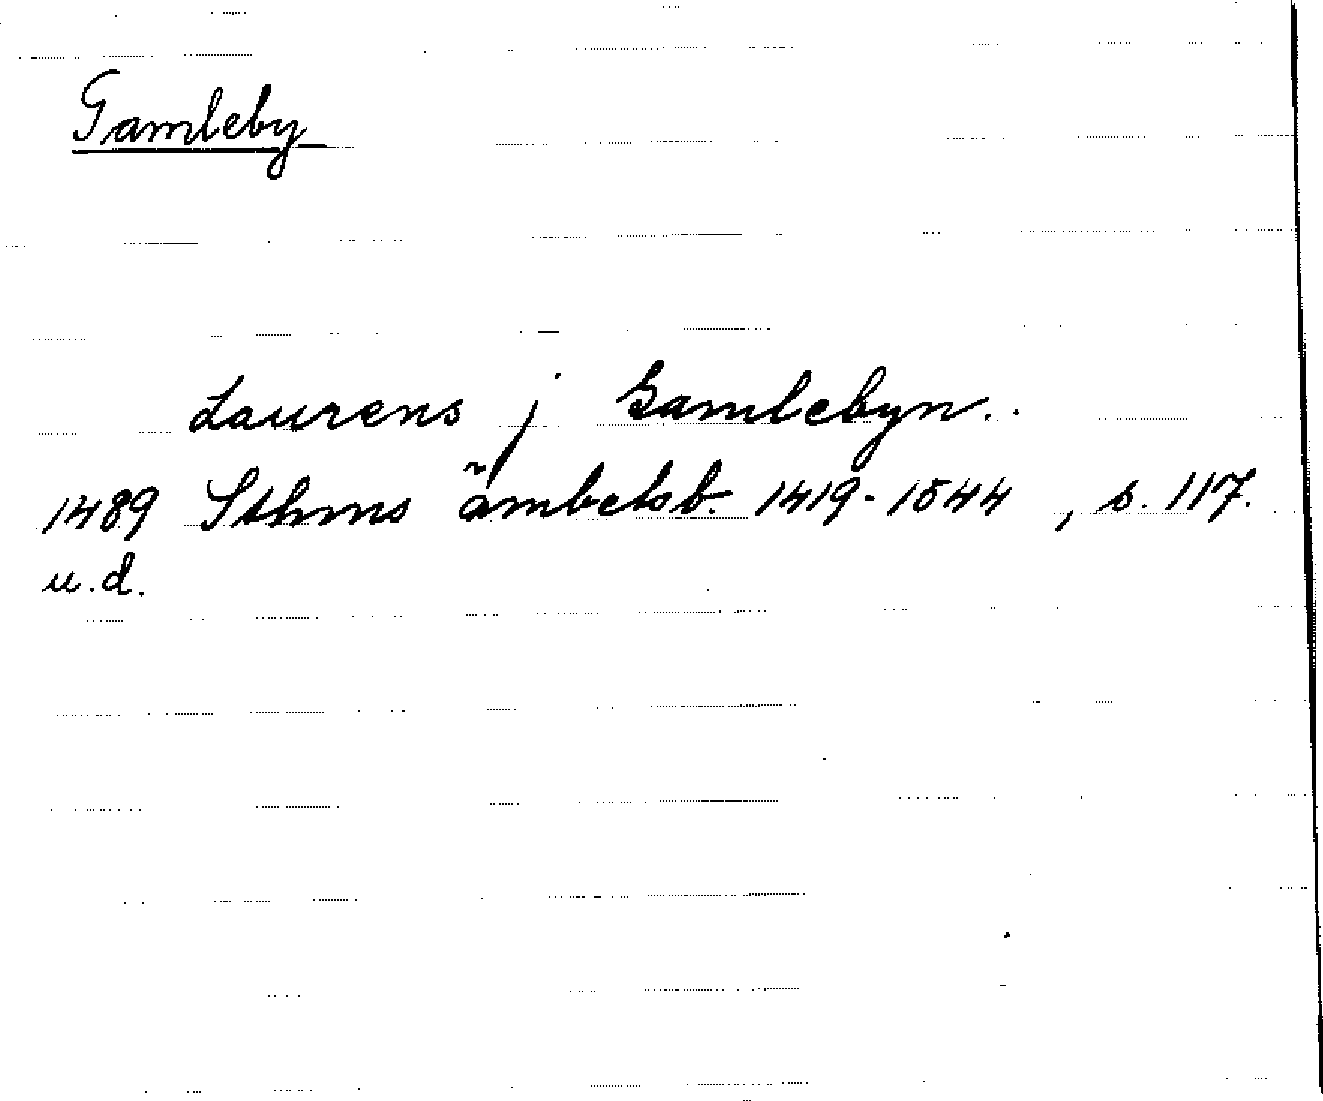 Gamleby
Laurens j Gamlebyn..
1489 Sthms ämbetsb. 1419-1544, s. 117.
u.d.